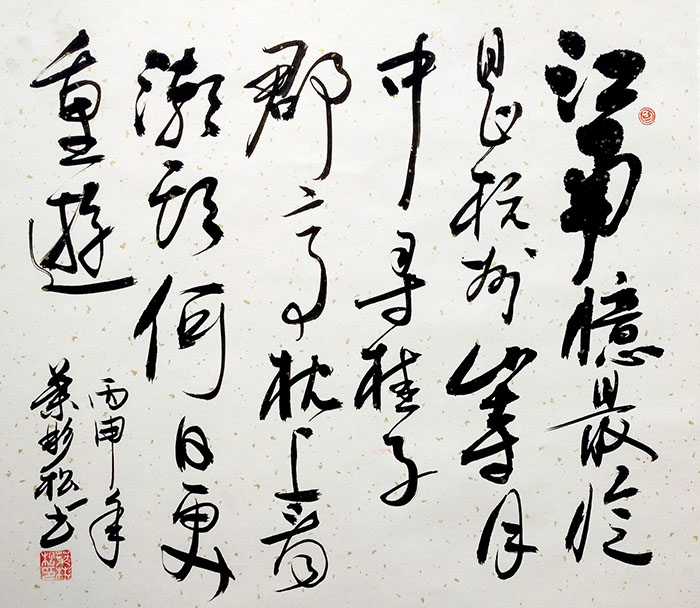 江南憶最憶
是杭州山寺月
中尋桂子
郡亭枕上看
潮頭何日更
重遊
丙申年
葉彬松书